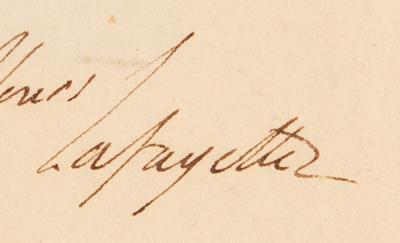 Yours
Lafayette